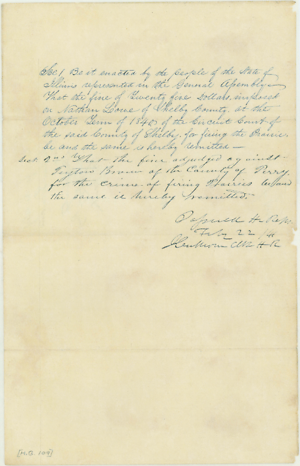 Sec 1 Be it enacted by the people of the State of
Illinois represented in the General Assembly
That the fine of Twenty five Dollars, imposed
on Nathan of Shelby County, at the
October Term of 1840 of the Circuit Court of
the said County of Shelby, for firing the Prairie
be and the same is hereby remitted—
Sec 2nd That the fine adjudged against
Brown of the County of Perry
for the crime of firing Prairies be and
the same is hereby remitted.
Passed H Reps
Feby 22 /41
Clk H R
[H.B. 184]